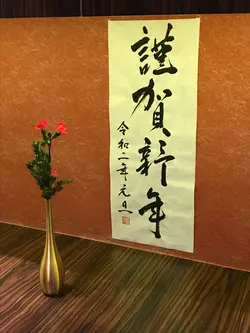 謹賀新年
令和二年元旦